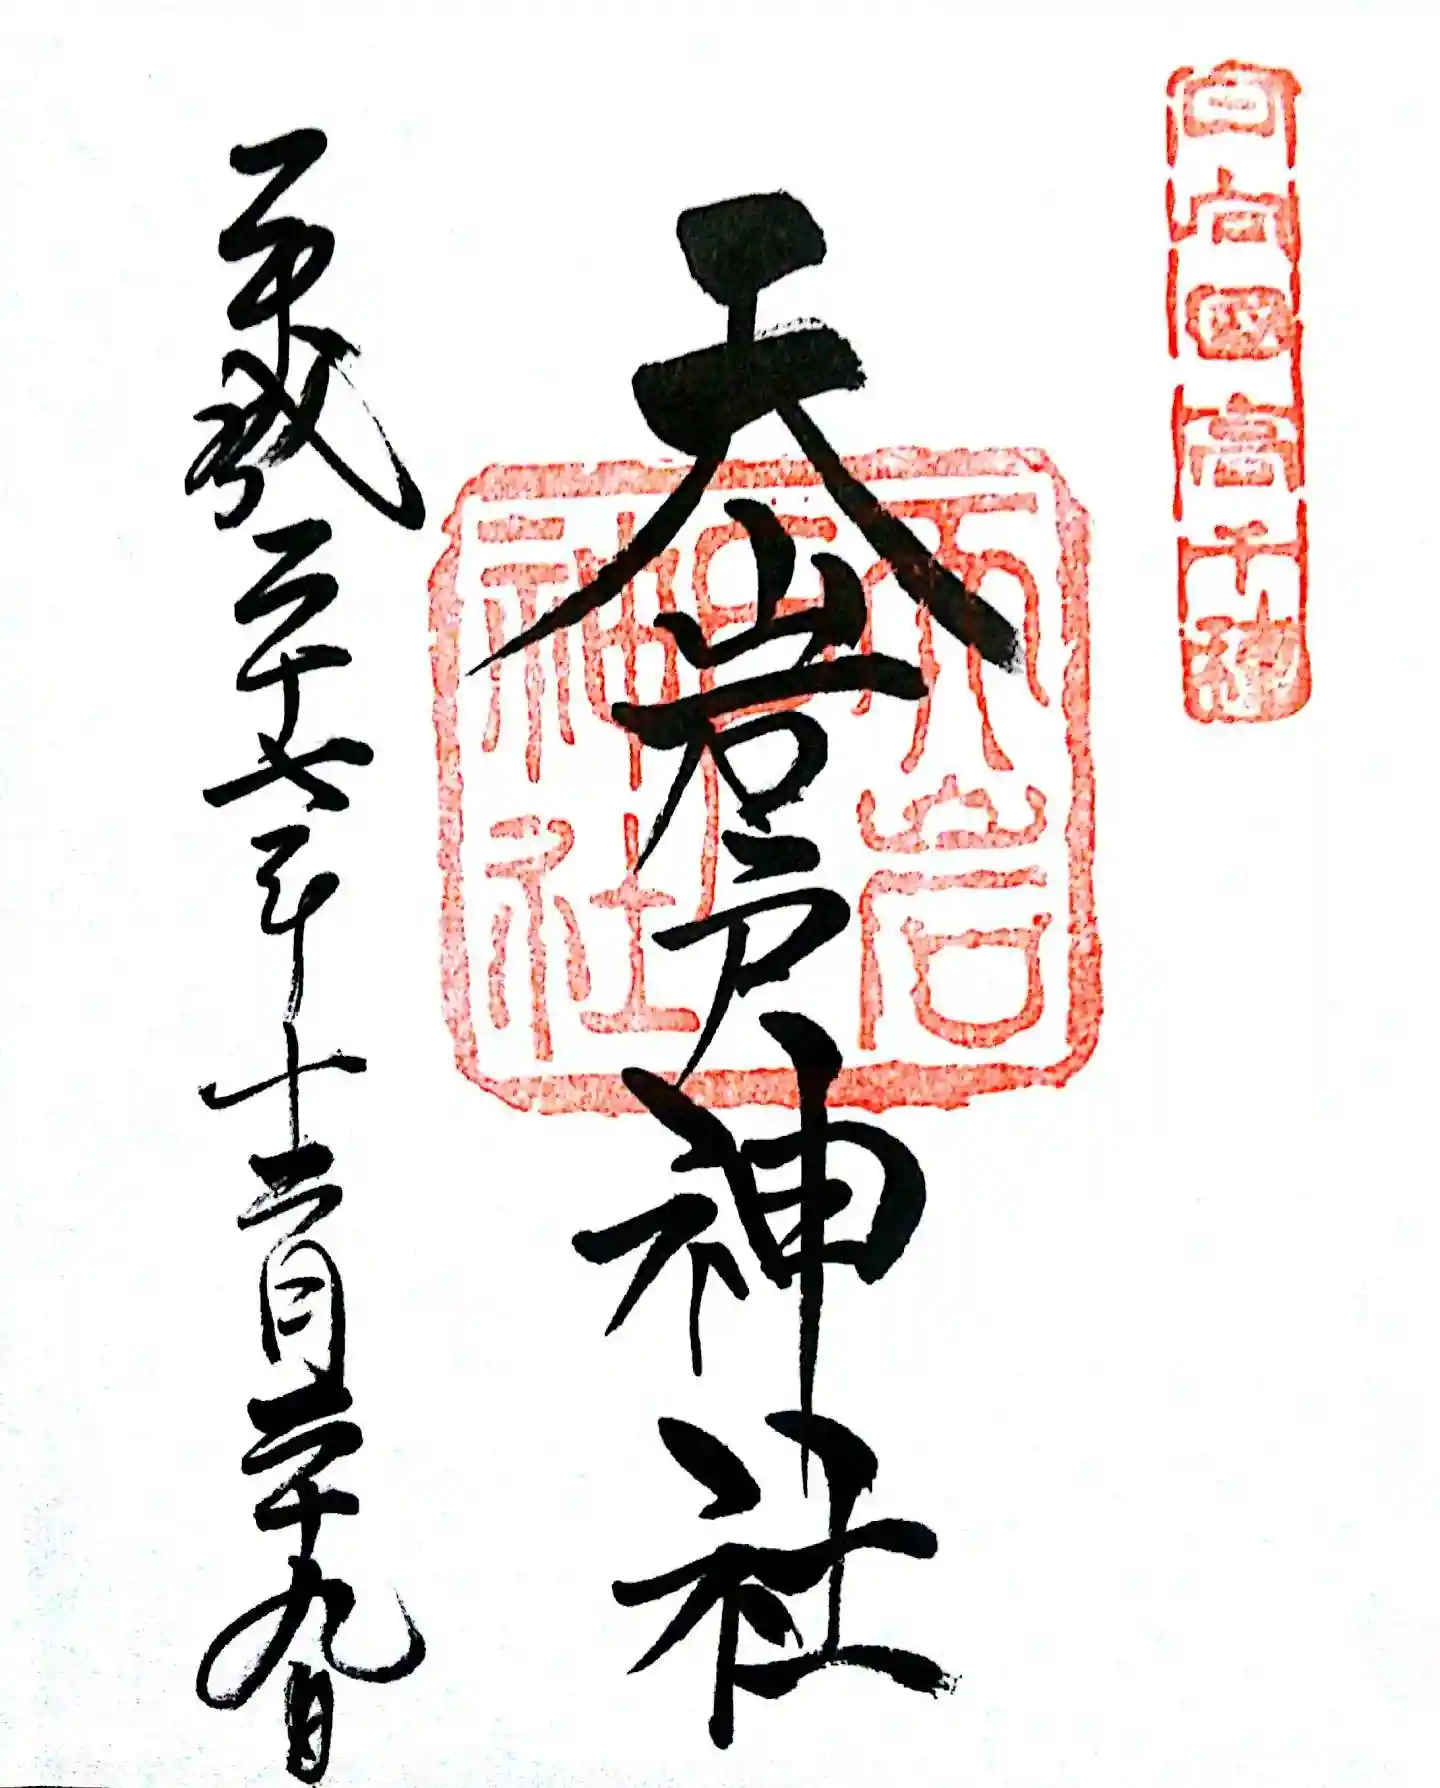 日向國高千穂
天岩戸神社
天岩戸神社
平成二十七年十二月二十九日